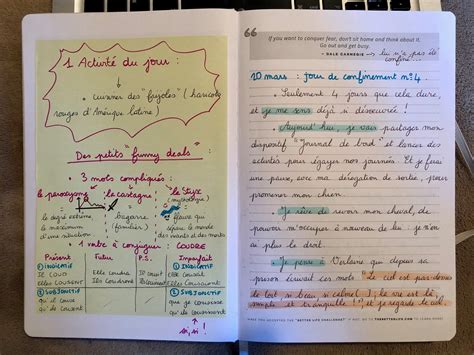 1 Activité du jour :
→ cuisiner des "fayoles" (haricots
rouges d'Amérique latine)
Des petits "funny deals"
• 3 mots compliqués :
le paroxysme la castagne le Styx
(mythologie)
le degré extrême,
le maximum
d'une situation
bagarre
(familier)
fleuve qui
sépare le monde
des vivants et des morts
• 1 verbe à conjuguer : COUDRE
Présent Futur P.S. Imparfait
① INDICATIF
JE COUDS
ILS COUSENT
Elle coudra
Ils coudront
Il cousit
① INDICATIF
Elle cousait
② SUBJONCTIF
qu'il couse
qu'ils cousent
② SUBJONCTIF
que je cousisse
qu'ils cousissent
si, si !
If you want to conquer fear, don't sit home and think about it.
Go out and get busy.
- DALE CARNEGIE - lui n'a pas été
confiné...
10 mars : jour de confinement n°4.
• Seulement 4 jours que cela dure,
et je me sens déjà si désoeuvrée !
• Aujourd'hui, je vais partager mon
dispositif "Journal de bord" et lancer des
activités pour égayer nos journées. Et je ferai
une pause, avec ma dérogation de sortie, pour
promener mon chien.
• Je rêve de revoir mon cheval, de
pouvoir m'occuper à nouveau de lui : je n'en
ai plus le droit.
• Je pense à Verlaine qui depuis sa
prison écrivait ces mots "Le ciel est par-dessus
le toit si beau si calme ! ; la vie est là
simple et tranquille !" et je regarde le ciel.